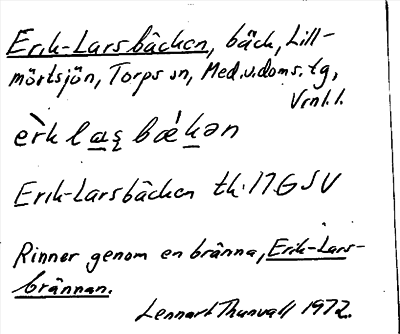 Erik-Larsbäcken, bäck, Lill-
mörtsjön, Torps sn, Med.v.doms. tg,
Vrnl. l.
èrk laʂ bǽkən
Erik-Larsbäcken tk. 17 G SV
Rinner genom en bränna, Erik-Lars-
brännan.
Lennart Thunvall 1972.